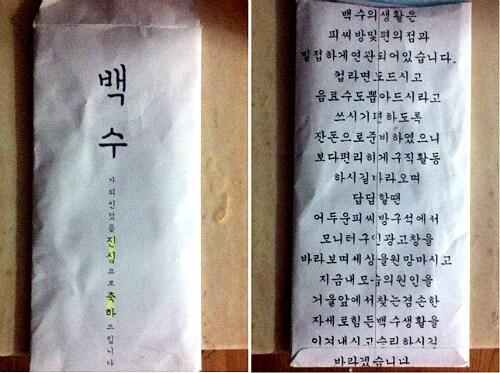 백
수
가 되신것을
진심으로 축하드립니다
백수의생활은
피씨방및편의점과
밀접하게연관되어있습니다.
컵라면도드시고
음료수도뽑아드시라고
쓰시기편하도록
잔돈으로준비하였으니
보다편리하게구직활동
하시길바라오며
답답할땐
어두운피씨방구석에서
모니터구인광고창을
바라보며세상을원망마시고
지금내모습의원인을
거울앞에서찾는겸손한
자세로힘든백수생활을
이겨내시고승리하시길
바라겠습니다